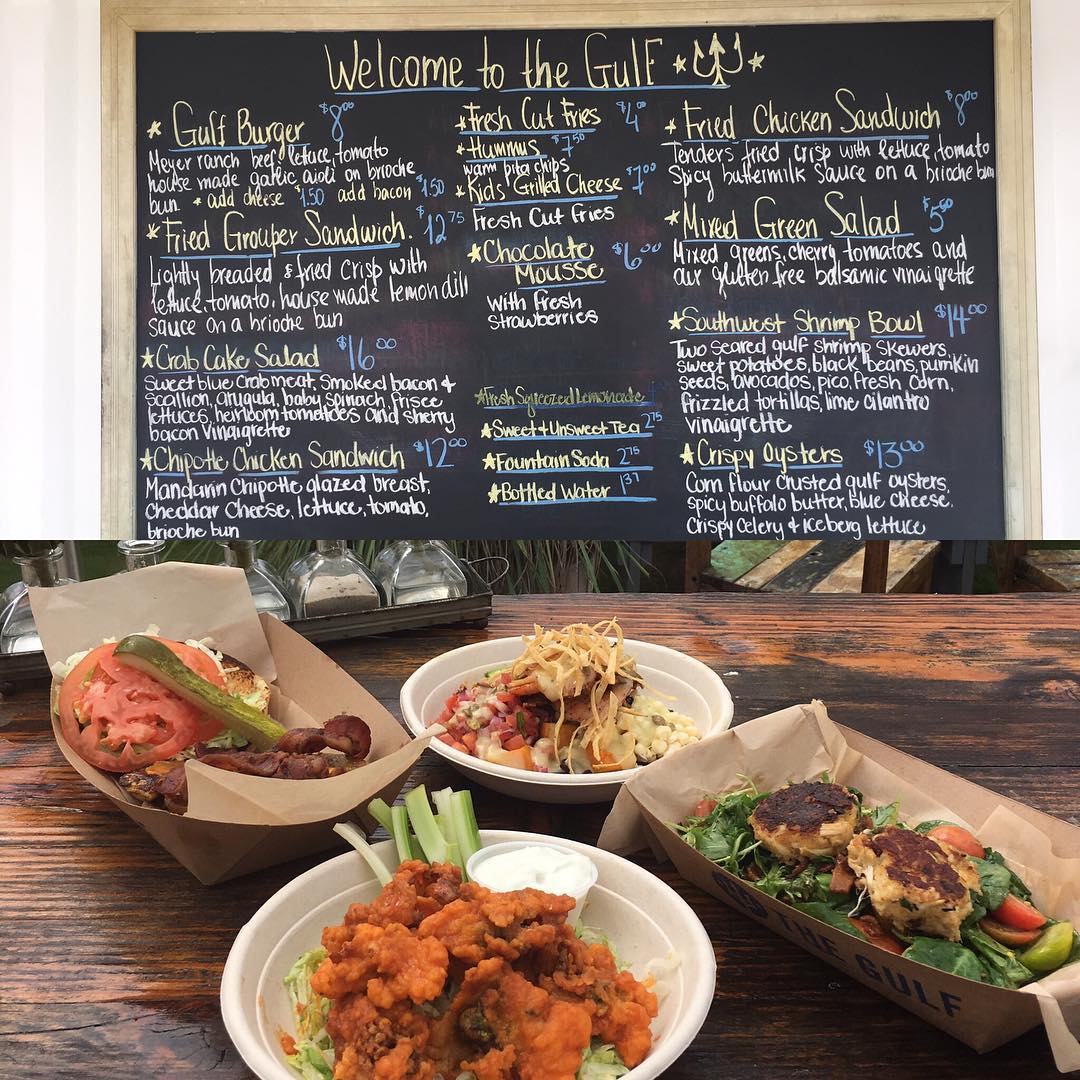 Welcome to the Gulf
* Gulf Burger $8.00
Meyer ranch beef, lettuce, tomato
house made garlic aioli on brioche
bun. * add cheese $1.50 add bacon $1.50
* Fried Grouper Sandwich. $12.75
Lightly breaded & fried crisp with
lettuce, tomato, house made lemon dill
sauce on a brioche bun
*Crab Cake Salad $16.00
Sweet blue Crabmeat, Smoked bacon &
scallion, arugula, baby spinach, frisee
lettuces, heirloom tomatoes and sherry
bacon vinaigrette
*Chipotle Chicken Sandwich $12.00
Mandarin Chipotle glazed breast,
Cheddar Cheese, lettuce, tomato,
brioche bun
*Fresh Cut Fries $4.00
*Hummus $7.50
warm pita chips
*Kids Grilled Cheese $7.00
Fresh Cut Fries
*Chocolate
Mousse $6.00
with fresh
strawberries
*Fresh Squeezed Lemonade
*Sweet & Unsweet Tea 2.75
*Fountain Soda 2.75
*Bottled Water 1.37
* Fried Chicken Sandwich $8.00
Tenders fried crisp with lettuce, tomato
Spicy buttermilk sauce on a brioche bun
*Mixed Green Salad $5.50
Mixed greens, cherry tomatoes and
our gluten free balsamic vinaigrette
*Southwest Shrimp Bowl $14.00
Two seared gulf shrimp skewers,
sweet potatoes, black beans, pumkin
seeds, avocados, pico, fresh corn,
frizzled tortillas, lime cilantro
vinaigrette
*Crispy Oysters $13.00
Corn flour crusted gulf oysters,
spicy buffalo butter, blue cheese.
Crispy celery & iceberg lettuce
THE GULF